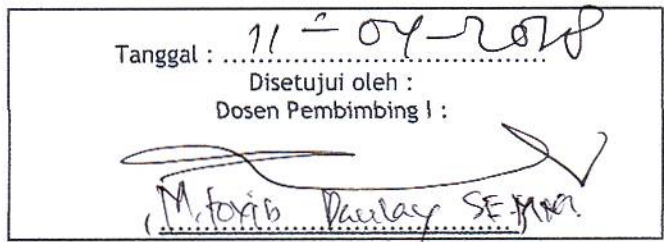 Tanggal : 11 - 04 - 2018
Disetujui oleh :
Dosen Pembimbing I :
M. Daulay SE.